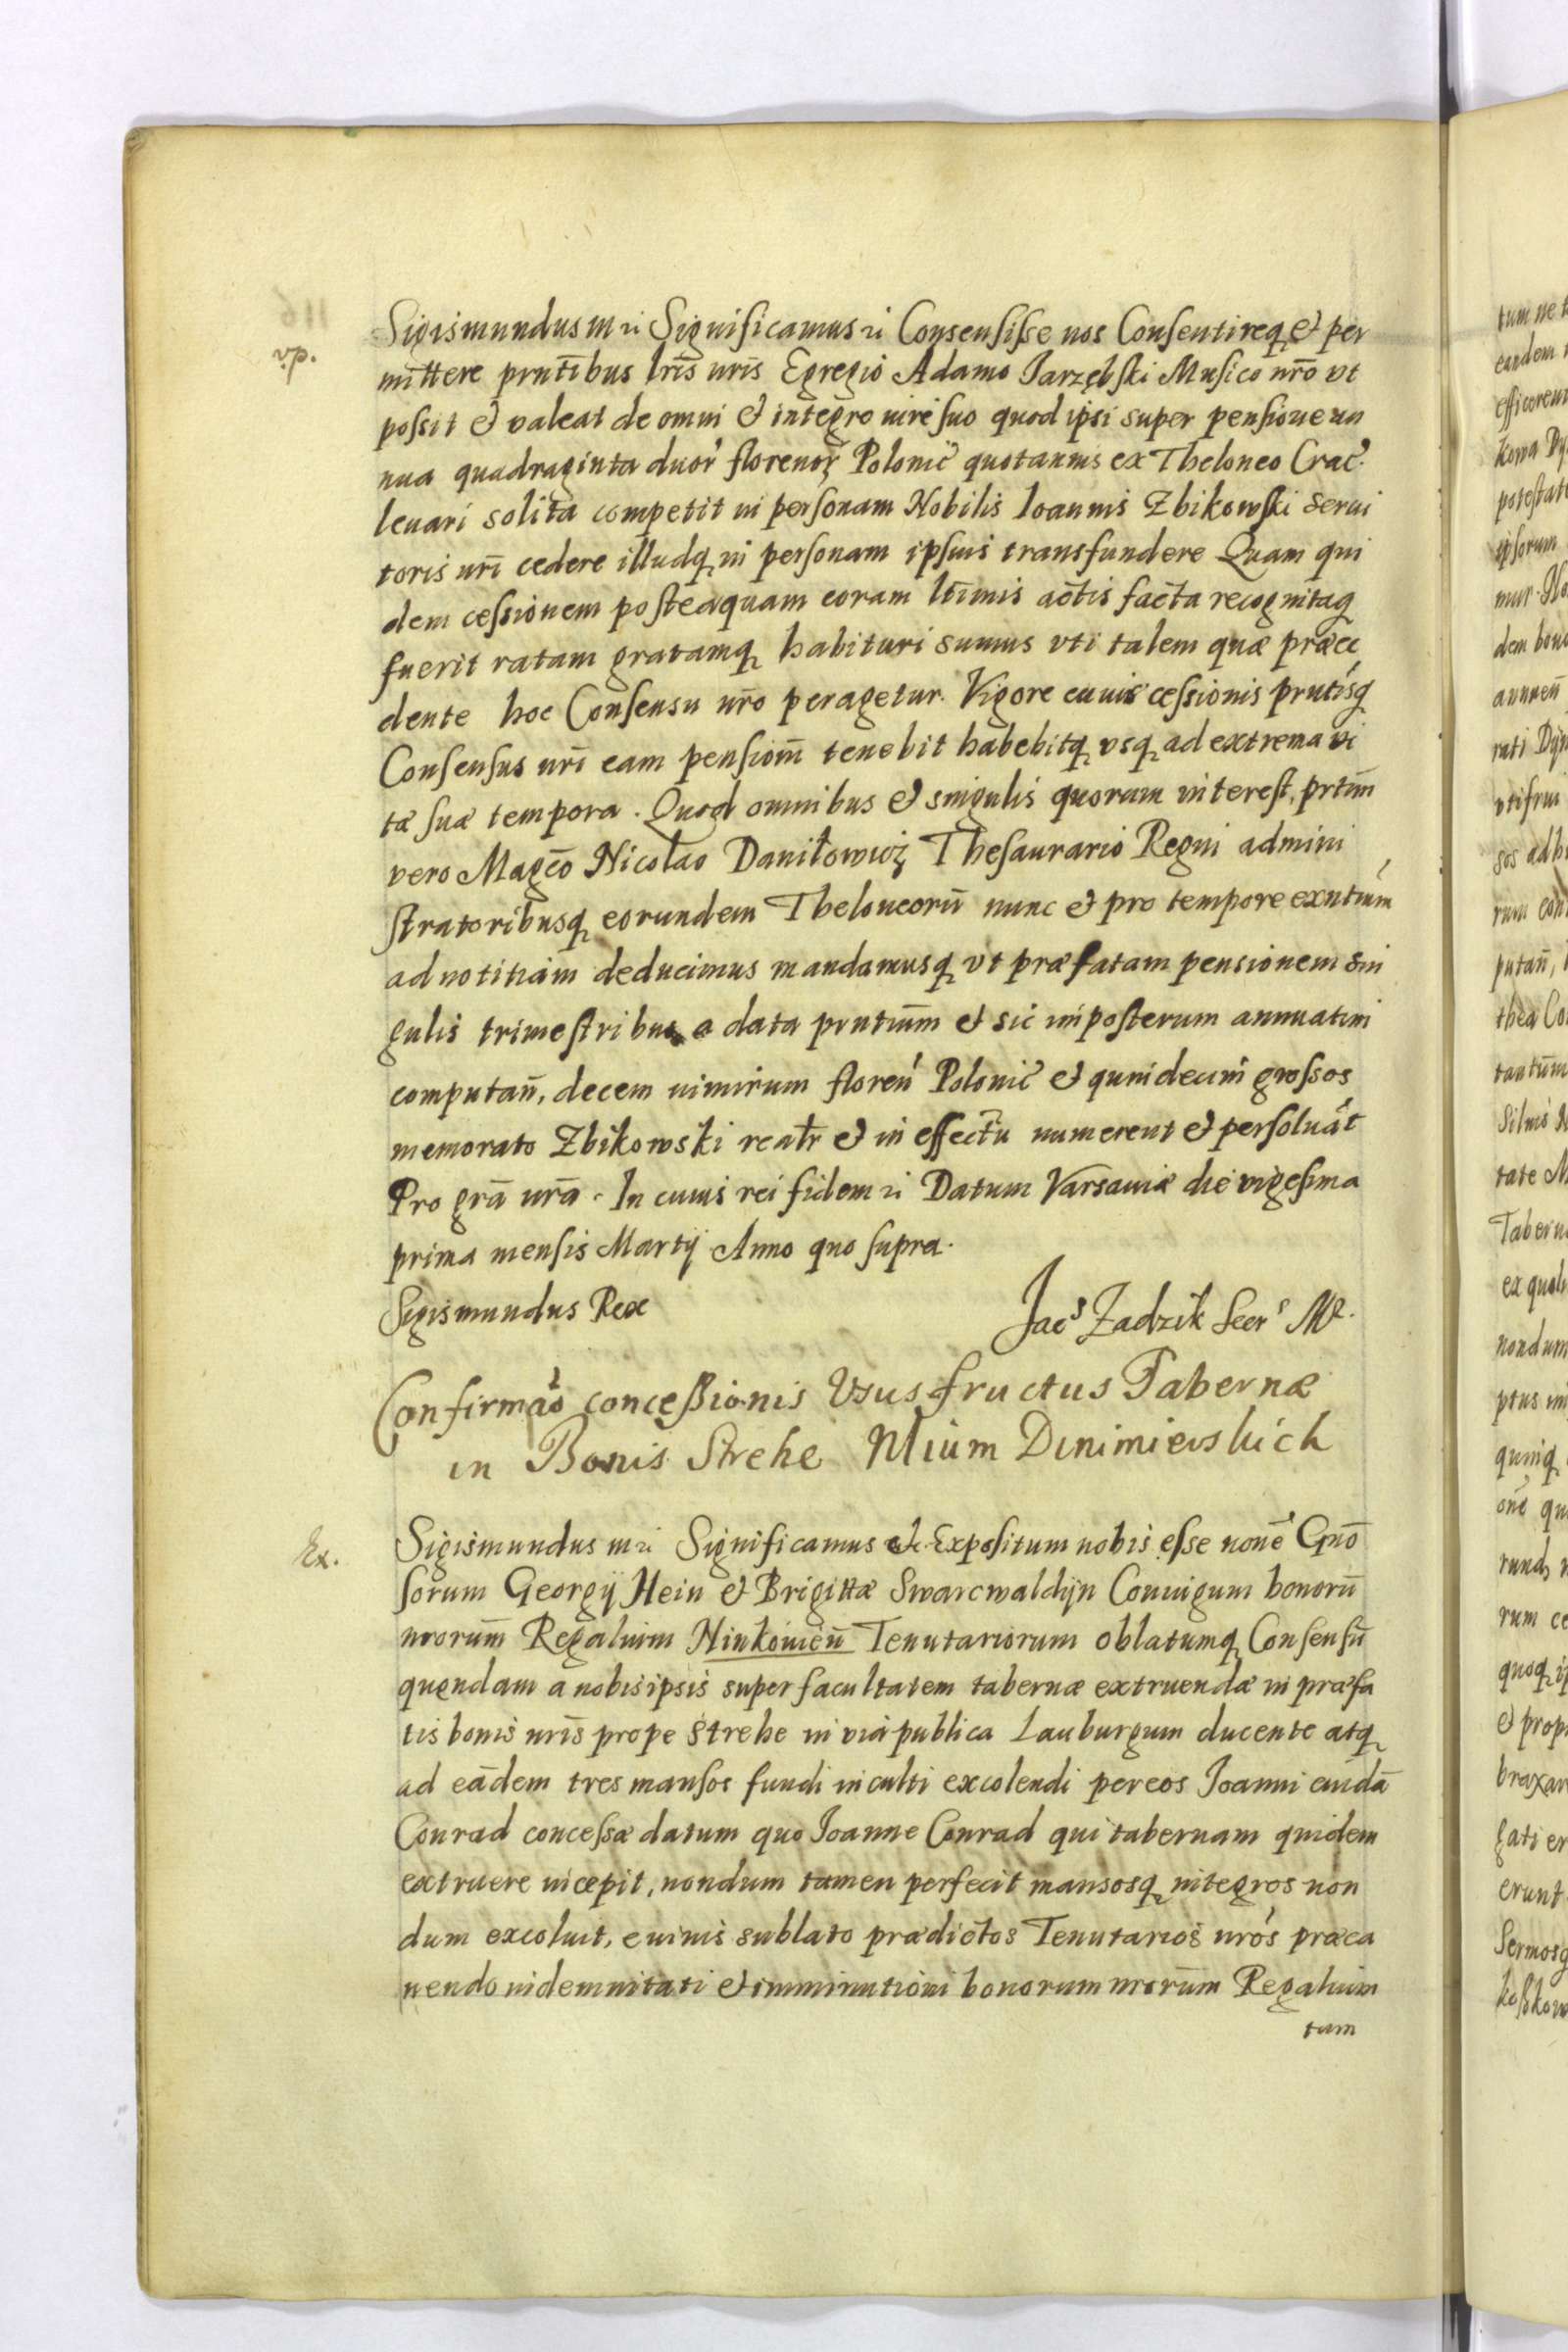 vp.
Sigismundus III etc Significamus etc Consensisse nos Consentireq et per
mittere prntibus lris nris Egregio Adamo Jarzębski Musico nro vt
possit et valeat de omni et integro iure suo quod ipsi super pensione an
nua quadraginta duor florenor Polonic quotannis ex Theloneo Crac.
leuari solita competit in personam Nobilis Ioannis Zbikowski serui
toris nri cedere illudq in personam ipsius transfundere Quam qui
dem cessionem posteaquam coram ltimis actis facta recognitaq
fuerit ratam gratamq habituri sumus vti talem quæ præce
dente hoc Consensu nro peragetur. Vigore cuius cessionis prntisq
Consensus nri eam pensiom tenebit habebitq vsq ad extrema vi
tæ suæ tempora. Quod omnibus et singulis quorum interest, prtim
vero Magco Nicolao Daniłowicz Thesaurario Regni admini
stratoribusq eorundem Theloneorū nunc et pro tempore exntium
ad notitiam deducimus mandamusq vt præfatam pensionem sin
gulis trimestribus a data prntium et sic imposterum annuatim
computan, decem nimirum floren Polonic et quindecim grossos
memorato Zbikowski realr et in effectu numerent et persoluat
Pro gra nra. In cuius rei fidem etc Datum Varsauiæ die vigesima
prima mensis Martij Anno quo supra.
Sigismundus Rex
Jacs Zadzik Secrs MR.
Confirmao concessionis Vsusfructus Tabernæ
in Bonis Strehe Nlium Dinimierskich
Ex.
Sigismundus III etc Significamus etc Expositum nobis esse none Gno
sorum Georgij Hein et Brigittæ Swarcwaldijn Coniugum bonorū
nrorum Regalium Ninkouien Tenutariorum oblatumq Consensū
quendam a nobis ipsis super facultatem tabernæ extruendæ in præfa
tis bonis nris prope Strehe in via publica Lauburgum ducente atq
ad eādem tres mansos fundi inculti excolendi per eos Joanni cuidā
Conrad concessæ datum quo Joanne Conrad qui tabernam quidem
extruere incepit, nondum tamen perfecit mansosq integros non
dum excoluit, e viuis sublato prædictos Tenutarios nros præca
uendo indemnitati et imminutioni bonorum nrorum Regalium
tam